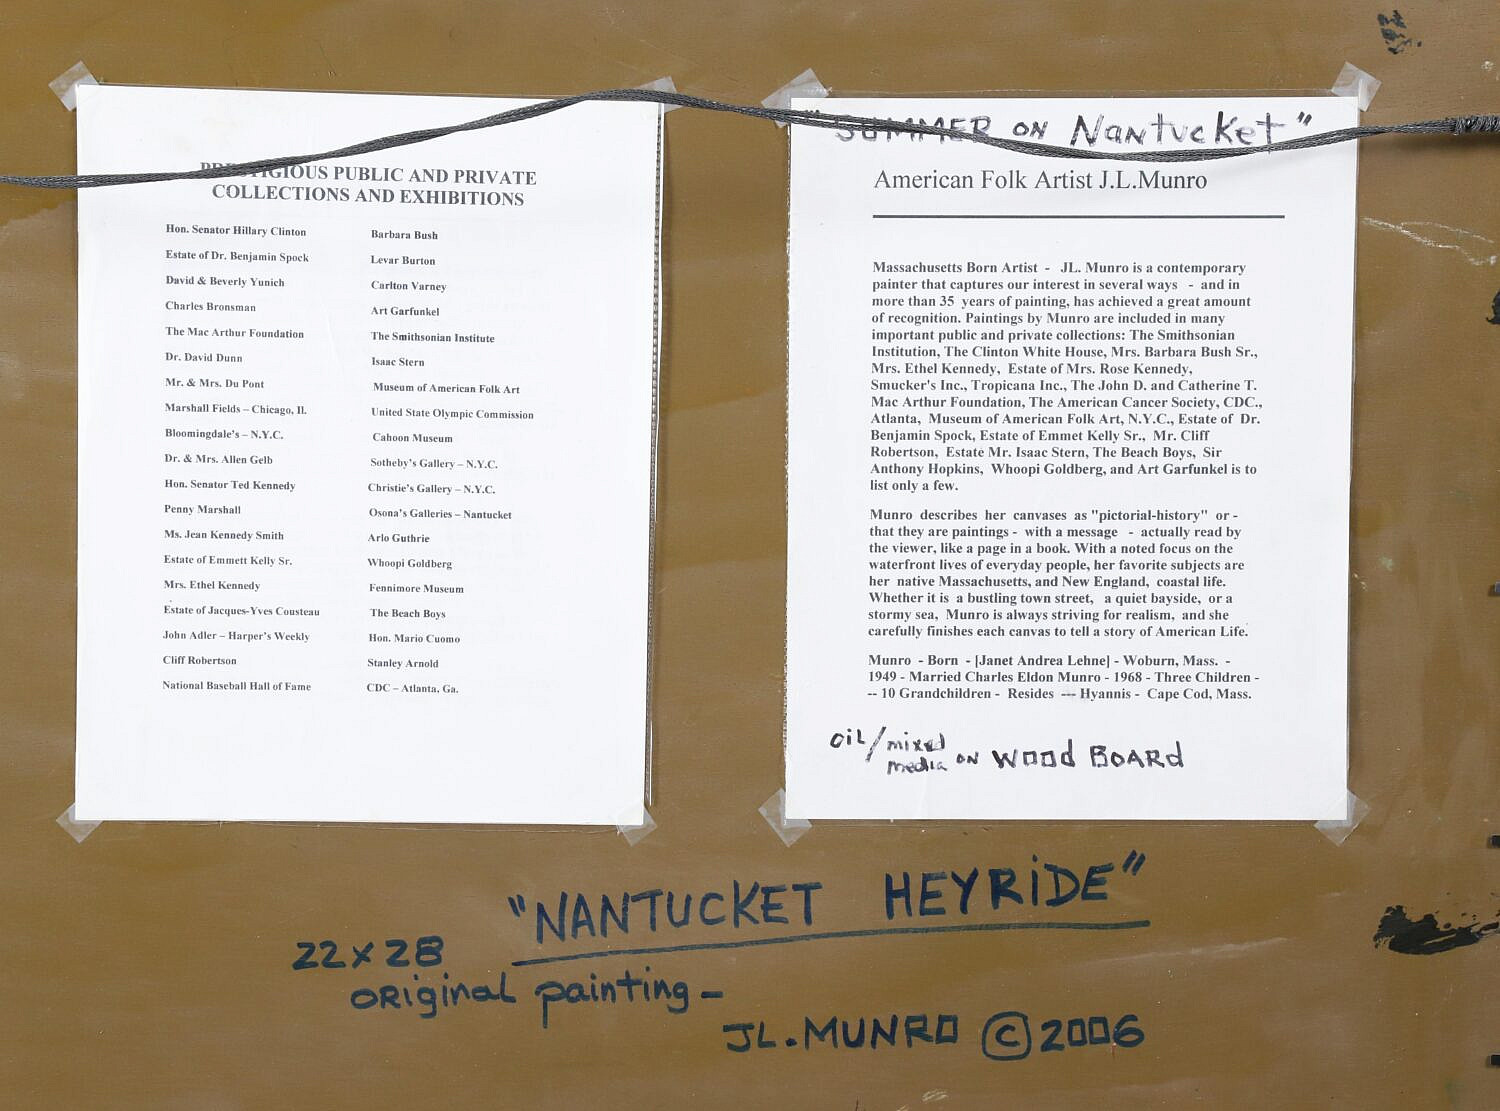 PRESTIGIOUS PUBLIC AND PRIVATE
COLLECTIONS AND EXHIBITIONS
Hon. Senator Hillary Clinton
Estate of Dr. Benjamin Spock
David & Beverly Yunich
Charles Bronsman
The Mac Arthur Foundation
Dr. David Dunn
Mr. & Mrs. Du Pont
Marshall Fields – Chicago, Il.
Bloomingdale's – N.Y.C.
Dr. & Mrs. Allen Gelb
Hon. Senator Ted Kennedy
Penny Marshall
Ms. Jean Kennedy Smith
Estate of Emmett Kelly Sr.
Mrs. Ethel Kennedy
Estate of Jacques-Yves Cousteau
John Adler – Harper's Weekly
Cliff Robertson
National Baseball Hall of Fame
Barbara Bush
Levar Burton
Carlton Varney
Art Garfunkel
The Smithsonian Institute
Isaac Stern
Museum of American Folk Art
United State Olympic Commission
Cahoon Museum
Sotheby's Gallery – N.Y.C.
Christie's Gallery – N.Y.C.
Osona's Galleries – Nantucket
Arlo Guthrie
Whoopi Goldberg
Fennimore Museum
The Beach Boys
Hon. Mario Cuomo
Stanley Arnold
CDC – Atlanta. Ga.
"SUMMER ON Nantucket"
American Folk Artist J.L.Munro
Massachusetts Born Artist - JL. Munro is a contemporary
painter that captures our interest in several ways - and in
more than 35 years of painting, has achieved a great amount
of recognition. Paintings by Munro are included in many
important public and private collections: The Smithsonian
Institution, The Clinton White House, Mrs. Barbara Bush Sr.,
Mrs. Ethel Kennedy, Estate of Mrs. Rose Kennedy,
Smucker's Inc., Tropicana Inc., The John D. and Catherine T.
Mac Arthur Foundation, The American Cancer Society, CDC.,
Atlanta, Museum of American Folk Art, N.Y.C., Estate of Dr.
Benjamin Spock, Estate of Emmet Kelly Sr., Mr. Cliff
Robertson, Estate Mr. Isaac Stern, The Beach Boys, Sir
Anthony Hopkins, Whoopi Goldberg, and Art Garfunkel is to
list only a few.
Munro describes her canvases as "pictorial-history" or -
that they are paintings - with a message - actually read by
the viewer, like a page in a book. With a noted focus on the
waterfront lives of everyday people, her favorite subjects are
her native Massachusetts, and New England, coastal life.
Whether it is a bustling town street, a quiet bayside, or a
stormy sea, Munro is always striving for realism, and she
carefully finishes each canvas to tell a story of American Life.
Munro - Born - [Janet Andrea Lehne] - Woburn, Mass. -
1949 - Married Charles Eldon Munro - 1968 - Three Children -
-- 10 Grandchildren - Resides --- Hyannis - Cape Cod, Mass.
OIL/mixed
media ON WOOD BOARD
"NANTUCKET HEYRIDE"
22 x 28
ORiginal painting -
JL. MUNRO © 2006